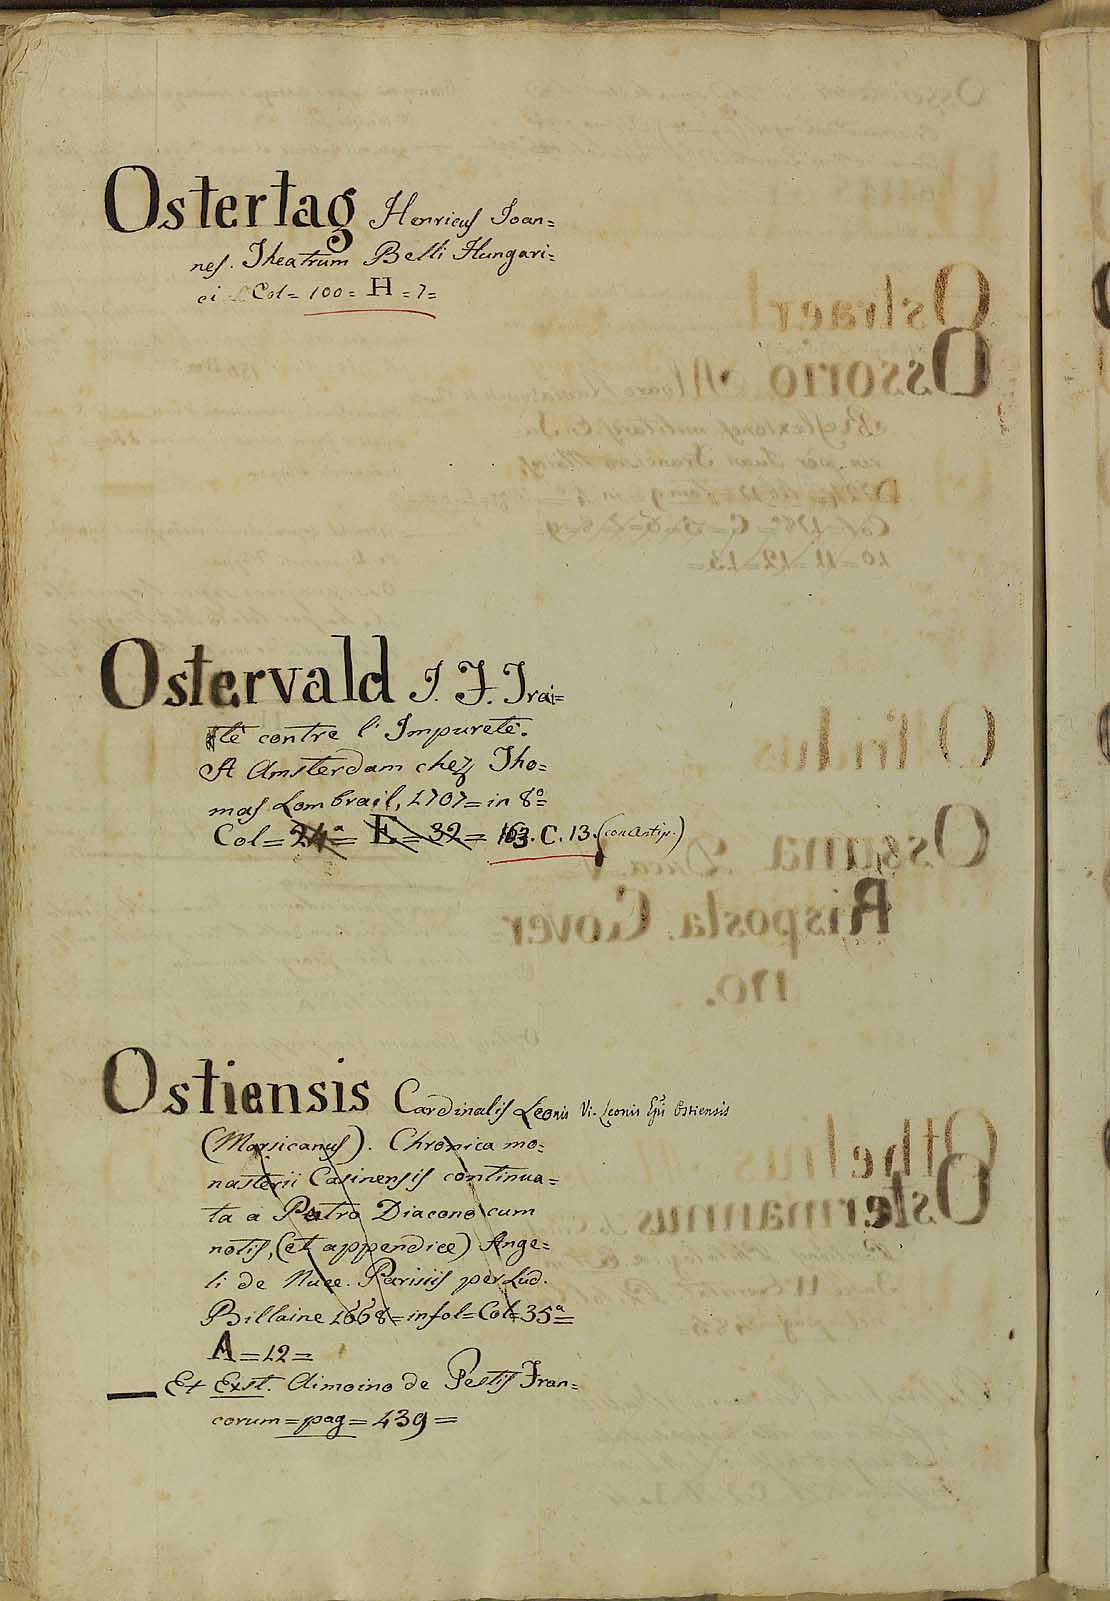 Ostertag Henricus Joan=
nes. Theatrum Belli Hungari=
ci Col= 100= H =7=
Ostervald J. F. Trai=
té contre l' Impureté.
A Amsterdam chez Tho=
mas Lombrail, 1707= in 8º=
Col= 24ª= E= 32= 163. C. 13. (con antip.)
Ostiensis Cardinalis Leonis Vi. Leonis Epi Ostiensis
(Marsicanus). Chronica mo=
nasterii Casinensis continua=
ta a Petro Diacono cum
notis, (et appendice) Ange=
li de Nuce. Parisiis per Lud.
Billaine 1668= in fol= Col= 35ª=
A =12=
Et Exst. Aimoino de Gestis Fran=
corum= pag= 439=